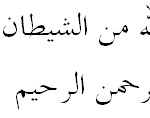 لله من الشيطان
رحمن الرحيم